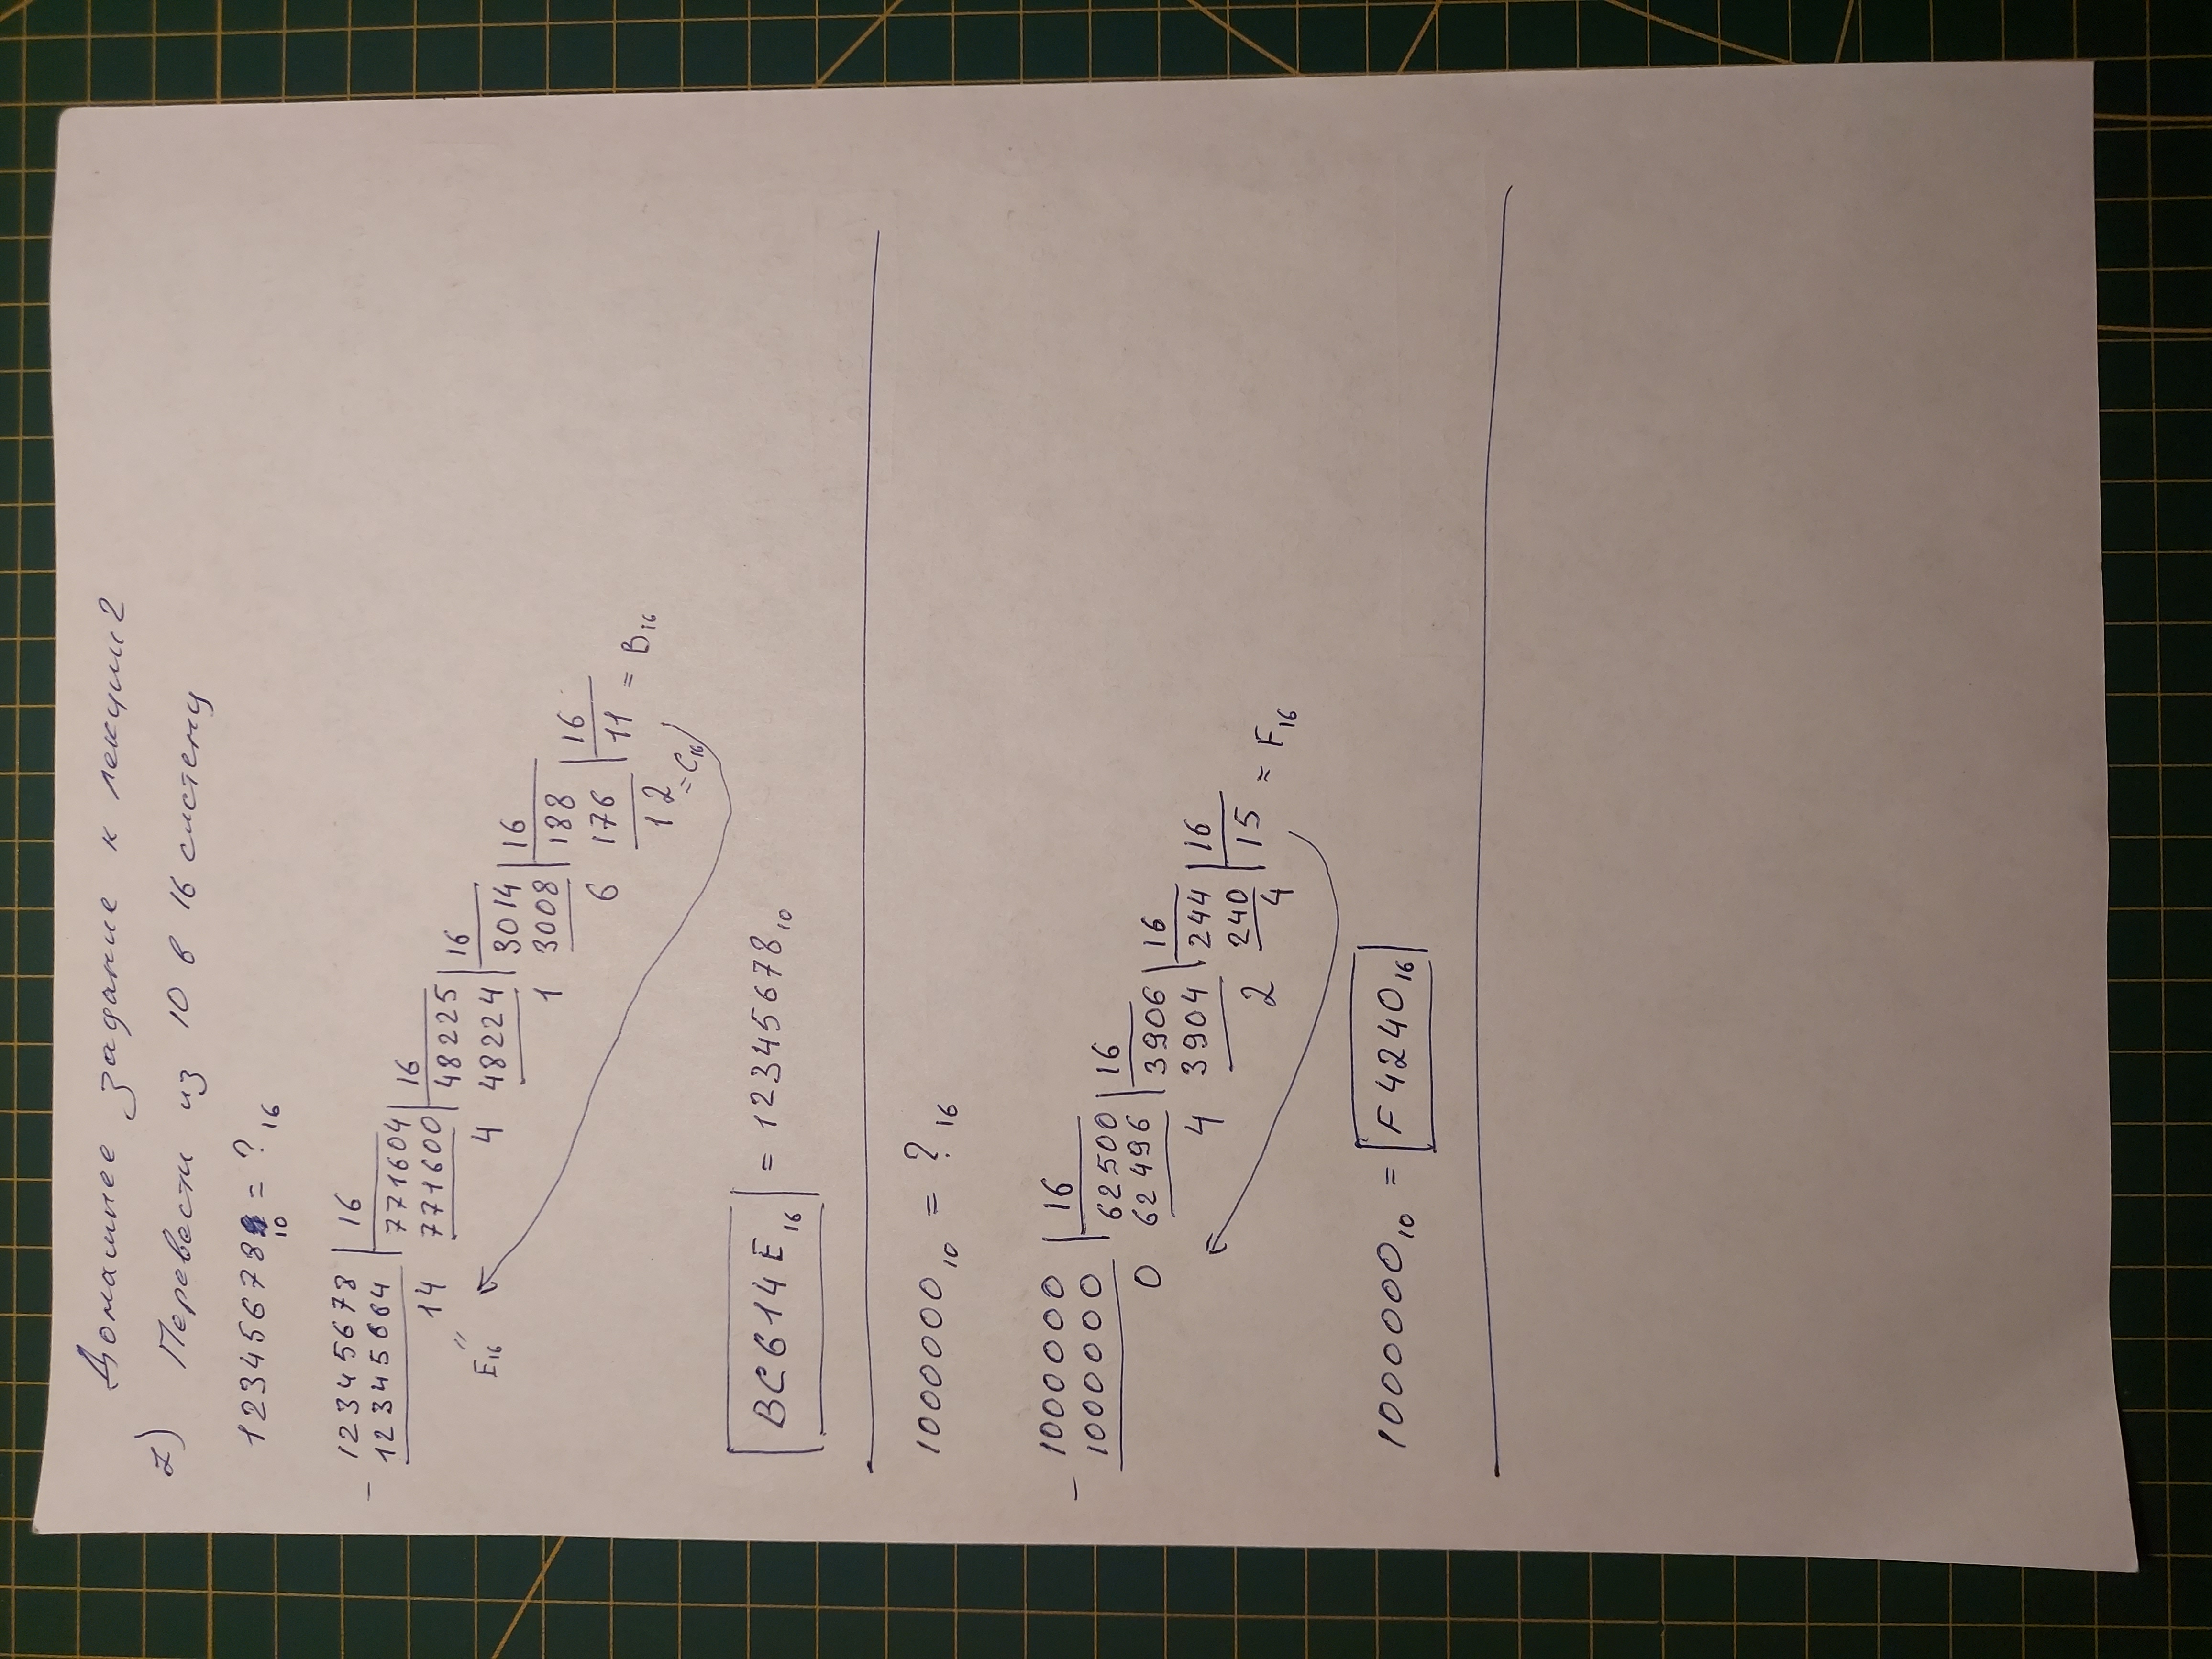 Домашнее задание к лекции 2
1) Перевести из 10 в 16 систему
12345678 10 = ? 16
- 12345678 | 16
12345664 771604 | 16
14 771600 48225 | 16
E16 4 48224 3014 | 16
1 3008 188 | 16
6 176 11 = B16
12 = C16
BC614E16 = 12345678 10
1000000 10 = ? 16
- 1000000 | 16
1000000 62500 | 16
0 62496 3906 | 16
4 3904 244 | 16
2 240 15 = F16
4
1000000 10 = F4240 16